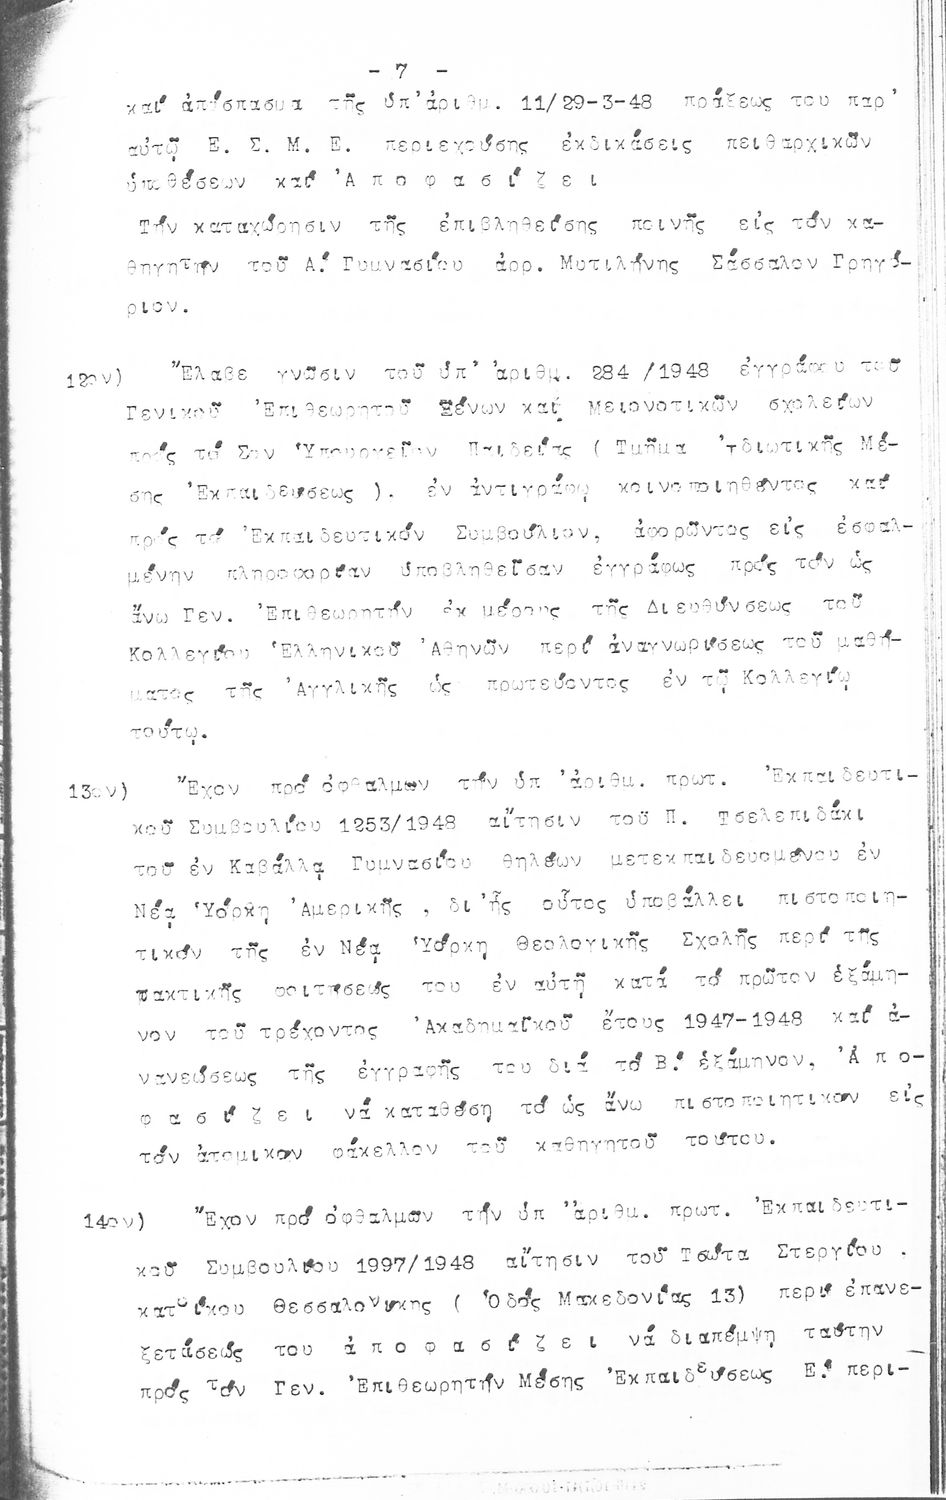 - 7 -
καί ἀπόσπασμα τῆς ὑπ' ἀριθμ. 11/29-3-48 πράξεως του παρ'
αὐτῷ Ε. Σ. Μ. Ε. περιεχούσης ἐκδικάσεις πειθαρχικῶν
ὑποθέσεων καί 'Α π ο φ α σ ί ζ ε ι
Τήν καταχώρησιν τῆς ἐπιβληθείσης ποινῆς εἰς τόν κα-
θηγητήν τοῦ Α.' Γυμνασίου ἀρρ. Μυτιλήνης Σάσσαλον Γρηγό-
ριον.
12ον) Ἔλαβε γνῶσιν τοῦ ὑπ' ἀριθμ. 284 /1948 ἐγγράφου τοῦ
Γενικοῦ Ἐπιθεωρητοῦ Ξένων καί Μειονοτικῶν σχολείων
πρός τό Σον Ὑπουργεῖον Παιδείας ( Τμῆμα Ἰδιωτικῆς Μέ-
σης Ἐκπαιδεύσεως ). ἐν ἀντιγράφῳ κοινοποιηθέντος καί
πρός τό Ἐκπαιδευτικόν Συμβούλιον, ἀφορῶντος εἰς ἐσφαλ-
μένην πληροφορίαν ὑποβληθεῖσαν ἐγγράφως πρός τόν ὡς
ἄνω Γεν. Ἐπιθεωρητήν ἐκ μέρους τῆς Διευθύνσεως τοῦ
Κολλεγίου Ἑλληνικοῦ Ἀθηνῶν περί ἀναγνωρίσεως τοῦ μαθή-
ματος τῆς Ἀγγλικῆς ὡς πρωτεύοντος ἐν τῷ Κολλεγίῳ
τούτῳ.
13ον) Ἔχον πρό ὀφθαλμῶν τήν ὑπ' ἀριθμ. πρωτ. Ἐκπαιδευτι-
κοῦ Συμβουλίου 1253/1948 αἴτησιν τοῦ Π. Τσελεπιδάκι
τοῦ ἐν Καβάλλᾳ Γυμνασίου θηλέων μετεκπαιδευομένου ἐν
Νέᾳ Ὑόρκη Ἀμερικῆς , δι' ἧς οὗτος ὑποβάλλει πιστοποιη-
τικόν τῆς ἐν Νέᾳ Ὑόρκη Θεολογικῆς Σχολῆς περί τῆς
πακτικῆς φοιτήσεώς του ἐν αὐτῇ κατά τό πρῶτον ἑξάμη-
νον τοῦ τρέχοντος Ἀκαδημαϊκοῦ ἔτους 1947-1948 καί ἀ-
νανεώσεως τῆς ἐγγραφῆς του διά τό Β.' ἑξάμηνον, Ἀ π ο-
φ α σ ί ζ ε ι νά καταθέσῃ τό ὡς ἄνω πιστοποιητικόν εἰς
τόν ἀτομικόν φάκελλον τοῦ καθηγητοῦ τούτου.
14ον) Ἔχον πρό ὀφθαλμῶν τήν ὑπ' ἀριθμ. πρωτ. Ἐκπαιδευτι-
κοῦ Συμβουλίου 1997/1948 αἴτησιν τοῦ Τσώτα Στεργίου .
κατοίκου Θεσσαλονίκης ( Ὁδός Μακεδονίας 13) περί ἐπανε-
ξετάσεώς του ἀ π ο φ α σ ί ζ ε ι νά διαπέμψῃ ταύτην
πρός τόν Γεν. Ἐπιθεωρητήν Μέσης Ἐκπαιδεύσεως Ε.' περι-